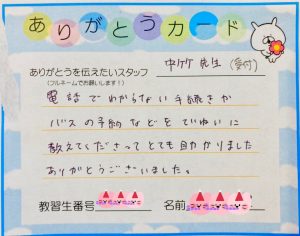 ありがとうカード
ありがとうを伝えたいスタッフ
(フルネームでお願いします！)
中竹 先生 (受付)
電話でわからない手続きや
バスの予約などをていねいに
教えてくださってとても助かりました
ありがとうございました。
教習生番号
名前